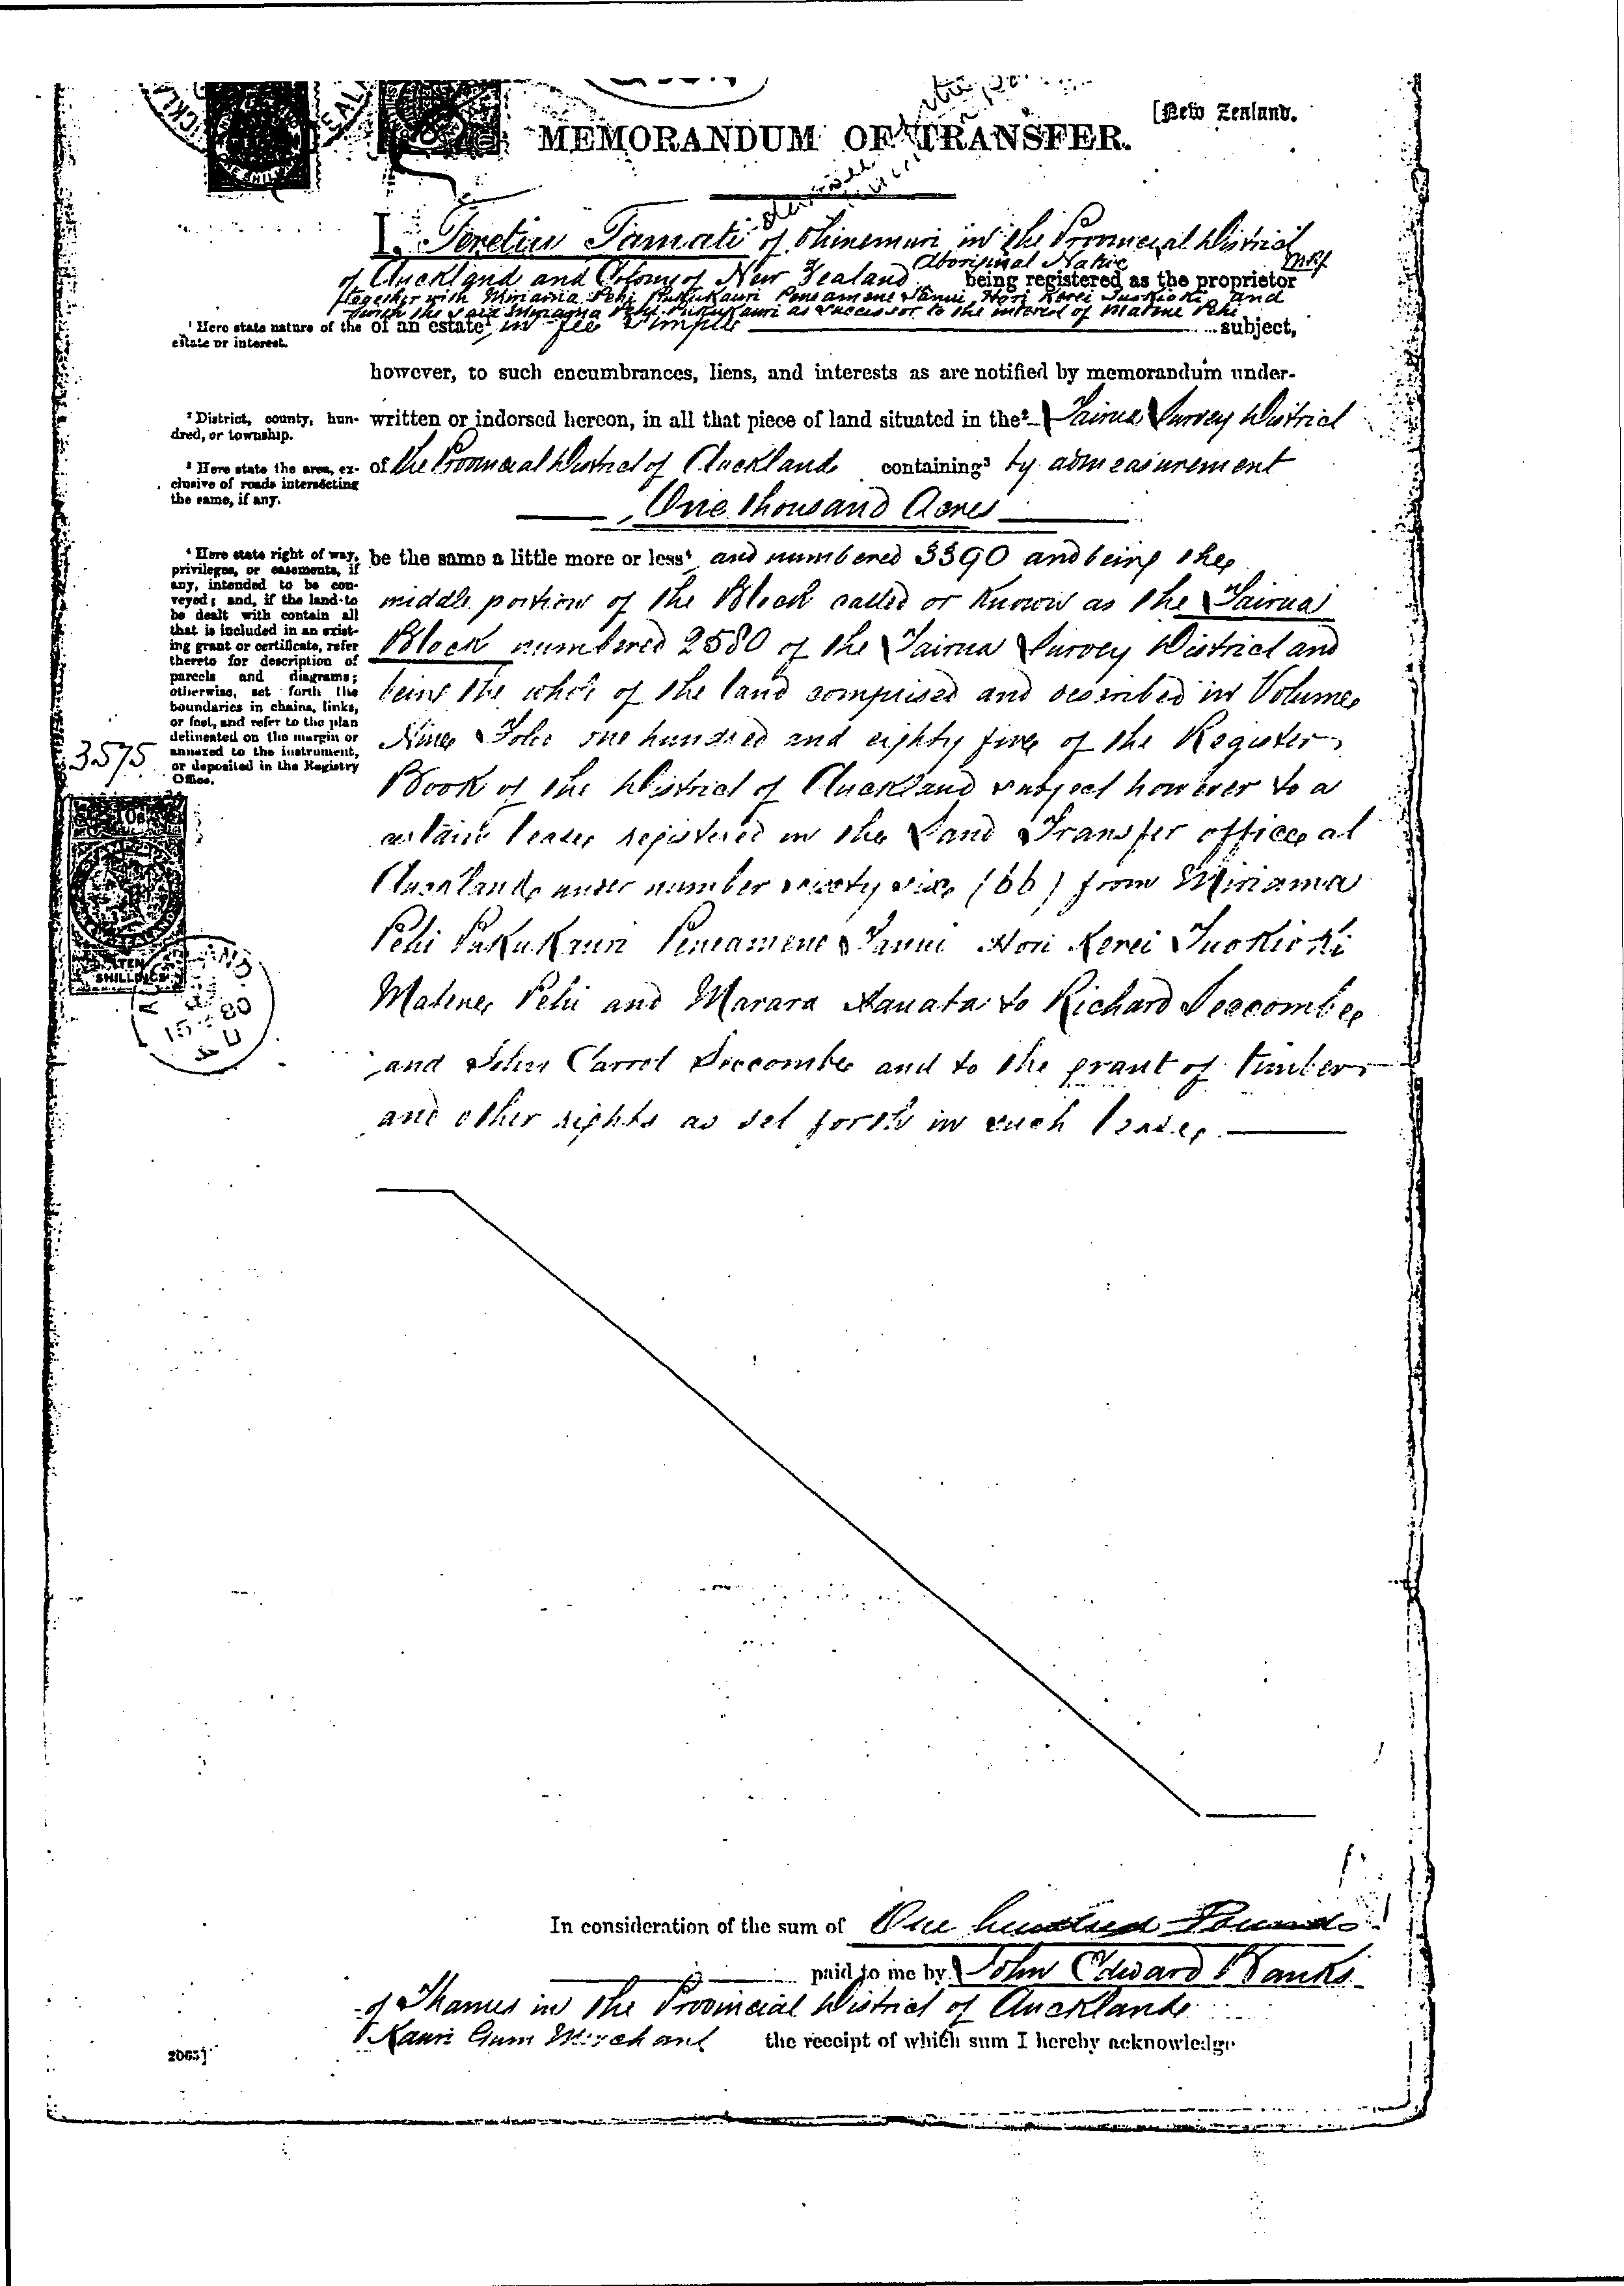 [New Zealand.
MEMORANDUM OF TRANSFER.
I, Teretiu Tamati of Ohinemuri in the Provincial District
of Auckland and Colony of New Zealand Aboriginal Native being registered as the proprietor
together with Miriama Pehi Pukukauri Peneamene Tanui, Hori Kerei Tuokioki, and
with the said Miriama Pehi Pukukauri as successor to the interest of Matene Pehi
¹ Here state nature of the estate or interest.
of an estate¹ in fee simple subject,
however, to such encumbrances, liens, and interests as are notified by memorandum under-
² District, county, hundred, or township.
written or indorsed hereon, in all that piece of land situated in the² Tairua Survey District
³ Here state the area, exclusive of roads intersecting the same, if any.
of the Provincial District of Auckland containing³ by admeasurement
One thousand Acres
⁴ Here state right of way, privileges, or easements, if
any, intended to be con-
veyed; and, if the land to
be dealt with contain all
that is included in an exist-
ing grant or certificate, refer
thereto for description of
parcels and diagrams;
otherwise, set forth the
boundaries in chains, links,
or feet, and refer to the plan
delineated on the margin or
annexed to the instrument,
or deposited in the Registry
Office.
be the same a little more or less⁴ and numbered 3390 and being the
middle portion of the Block called or known as the Tairua
Block numbered 2580 of the Tairua Survey District and
being the whole of the land comprised and described in Volume
Nine Folio one hundred and eighty five of the Register
Book of the District of Auckland subject however to a
certain lease registered in the Land Transfer office at
Auckland under number sixty six (66) from Miriama
Pehi Pukukauri Peneamene Tanui Hori Kerei Tuokioki
Matene Pehi and Marara Hauata to Richard Seccombe
and John Carrol Seccombe and to the grant of timber
and other rights as set forth in such lease
3575
TEN
SHILLINGS
In consideration of the sum of One hundred Pounds
paid to me by John Edward Banks
of Thames in the Provincial District of Auckland
Kauri Gum Merchant the receipt of which sum I hereby acknowledge
2065]